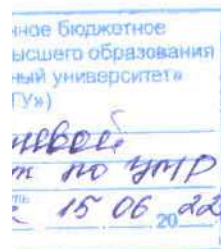 нное бюджетное
ысшего образования
ный университет»
ГУ»)
евой
по УМР
15 06 2022